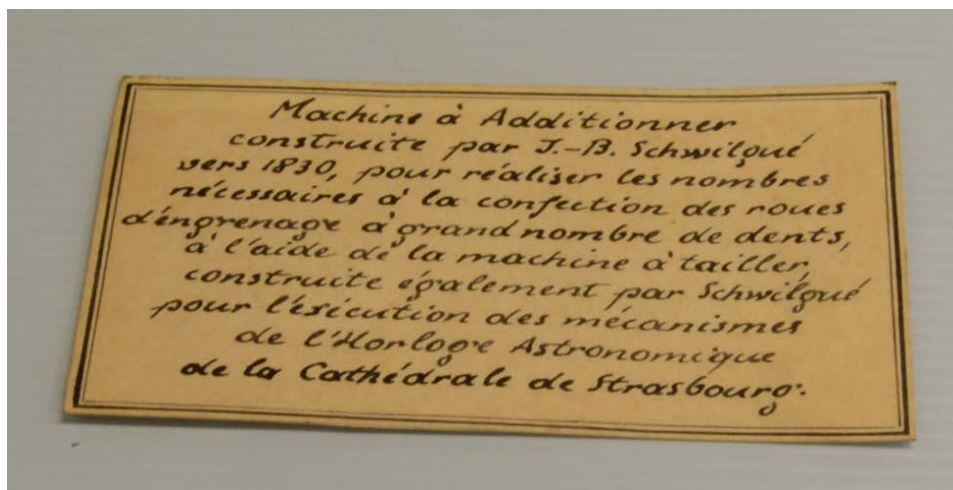 Machine à Additionner
construite par J.-B. Schwilgué
vers 1830, pour réaliser les nombres
nécessaires à la confection des roues
d'engrenage à grand nombre de dents,
à l'aide de la machine à tailler,
construite également par Schwilgué
pour l'éxécution des mécanismes
de l'Horloge Astronomique
de la Cathédrale de Strasbourg.